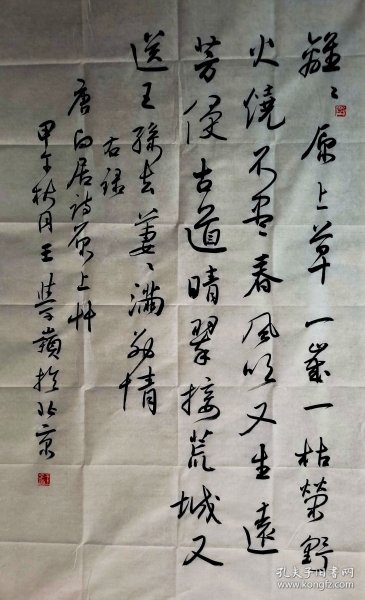 離〻原上草一歲一枯榮野
火燒不盡春風吹又生遠
芳侵古道晴翠接荒城又
送王孫去萋〻滿別情
右錄
唐白居詩原上艸
甲午秋月王崇嶺於北京
孔夫子旧书网
book.kongfz.com